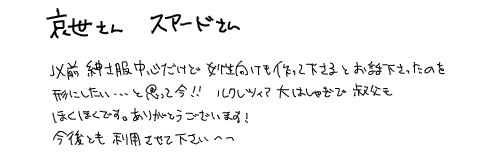 哀世さん スアードさん
以前 紳士服中心だけど 女性向けも作って下さるとお話下さったのを
形にしたい…と思って今!! ルクレツィア大はしゃぎで 叔父も
ほくほくです。ありがとうございます!
今後とも 利用させて下さいへへ